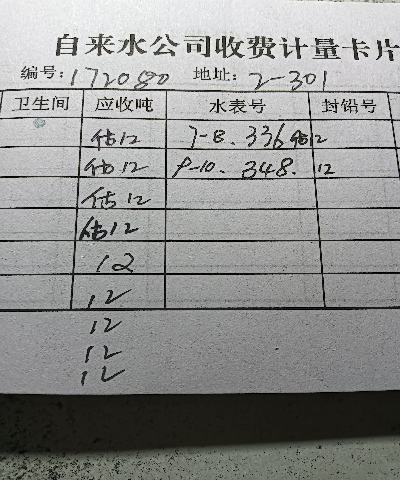 自来水公司收费计量卡片
编号: 172080 地址: 2-301
卫生间 应收吨 水表号 封铅号
估12 7-8. 336 估12
估12 9-10. 348. 12
估12
估12
12
12
12
12
12